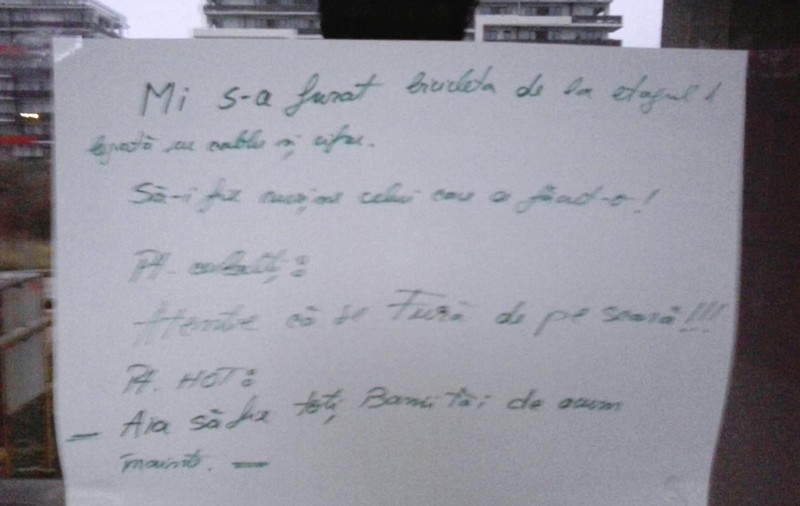 Mi s-a furat bicicleta de la etajul 1
legată cu cablu și cifru.
Să-i fie rușine celui care a făcut-o!
Pt. ceilalți:
Atenție că se Fură de pe scară!!!
Pt. HOT:
– Aia să fie toți Banii tăi de acum
înainte. –